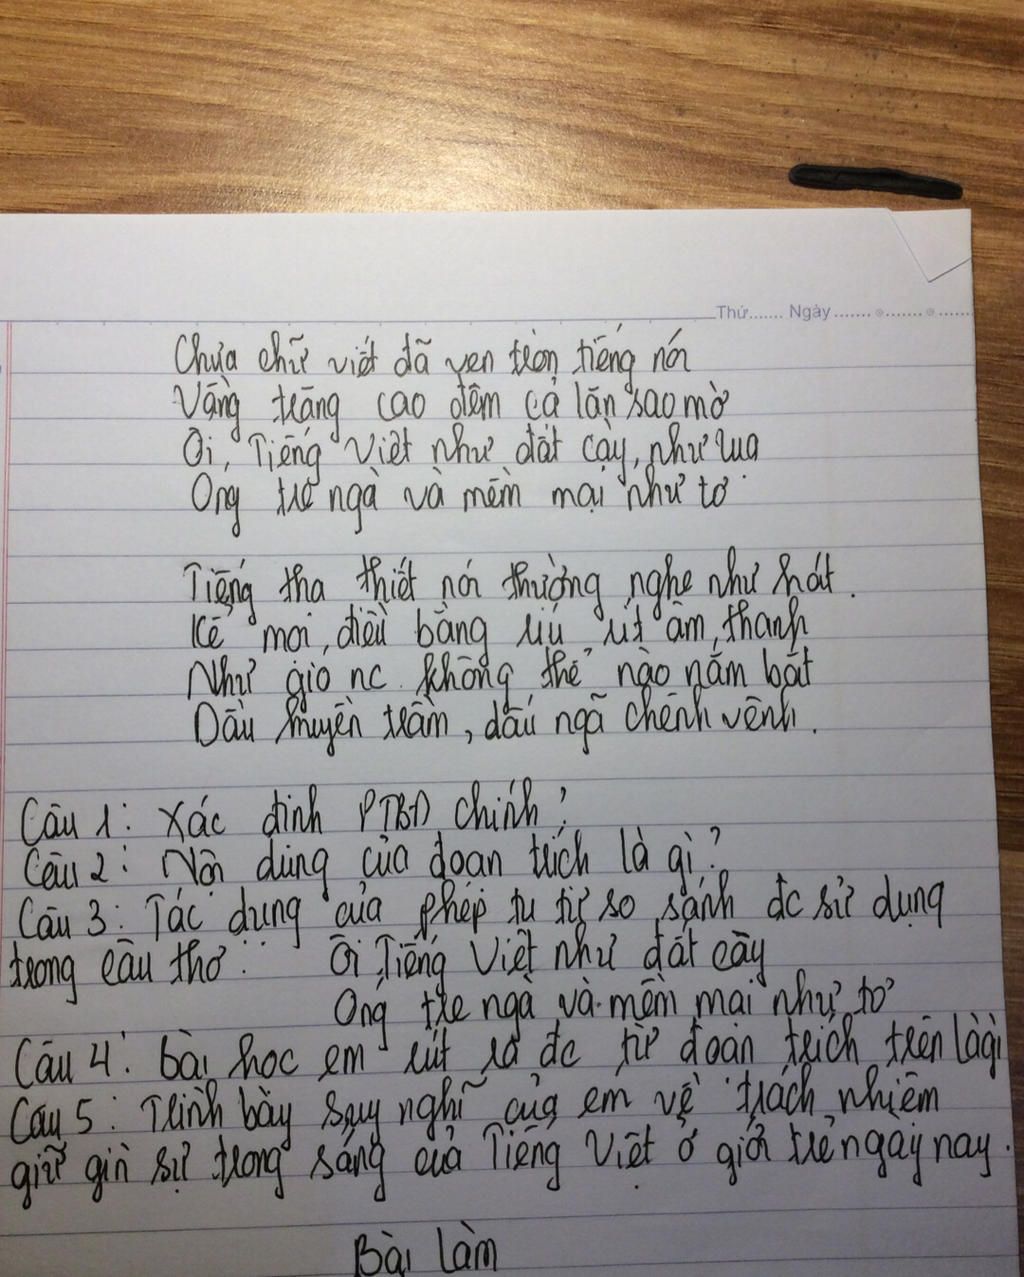 Thứ....... Ngày ................
Chưa chữ viết đã vẹn tròn tiếng nói
Vầng trăng cao đêm cá lặn sao mờ
Ôi, Tiếng Việt như đất cày, như lụa
Óng tre ngà và mềm mại như tơ
Tiếng tha thiết nói thường nghe như hát.
Kể mọi điều bằng ríu rít âm thanh
Như gió nc không thể nào nắm bắt
Dấu huyền trầm, dấu ngã chênh vênh.
Câu 1: Xác định PTBĐ chính?
Câu 2: Nội dung của đoạn trích là gì?
Câu 3: Tác dụng của phép tu từ so sánh đc sử dụng
trong câu thơ: Ôi Tiếng Việt như đất cày
Óng tre ngà và mềm mại như tơ
Câu 4: bài học em rút ra đc từ đoạn trích trên là gì
Câu 5: Trình bày suy nghĩ của em về trách nhiệm
giữ gìn sự trong sáng của Tiếng Việt ở giới trẻ ngày nay.
Bài làm